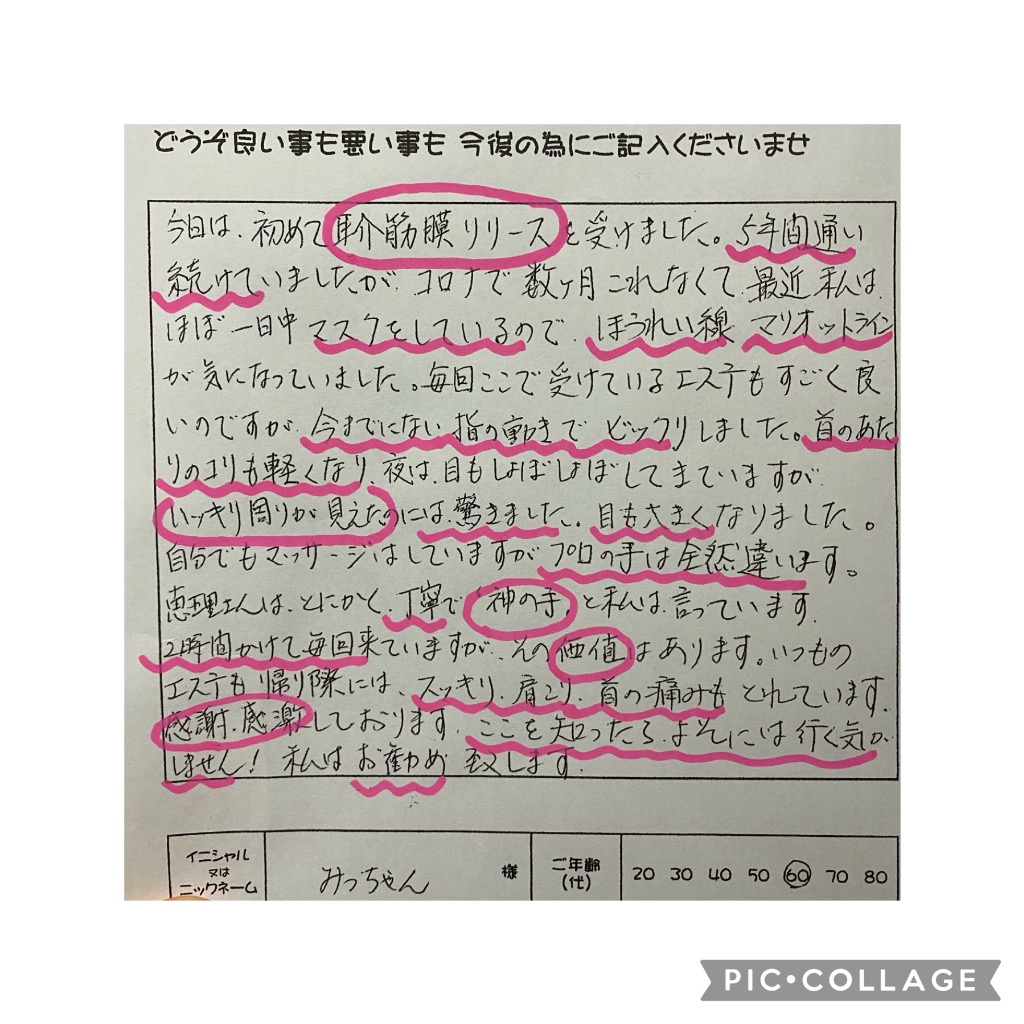 どうぞ良い事も悪い事も 今後の為にご記入くださいませ
今日は、初めて耳介筋膜リリースを受けました。5年間通い
続けていましたが、コロナで数ヶ月これなくて、最近私は
ほぼ一日中マスクをしているので、ほうれい線 マリオットライン
が気になっていました。毎回ここで受けているエステもすごく良
いのですが、今までにない指の動きでビックリしました。首のあた
りのコリも軽くなり、夜は、目もしょぼしょぼしてきていますが
いッキリ周りが見えたのには、驚きました。目も大きくなりました。
自分でもマッサージはしていますがプロの手は全然違います。
恵理さんは、とにかく、丁寧で「神の手」と私は、言っています。
2時間かけて毎回来ていますが、その価値はあります。いつもの
エステも帰り際には、スッキリ、肩こり、首の痛みもとれています。
感謝、感激しております。ここを知ったら、よそには行く気が
しません! 私はお勧め致します。
イニシャル
又は
ニックネーム
みっちゃん 様
ご年齢
(代)
20 30 40 50 60 70 80
PIC•COLLAGE